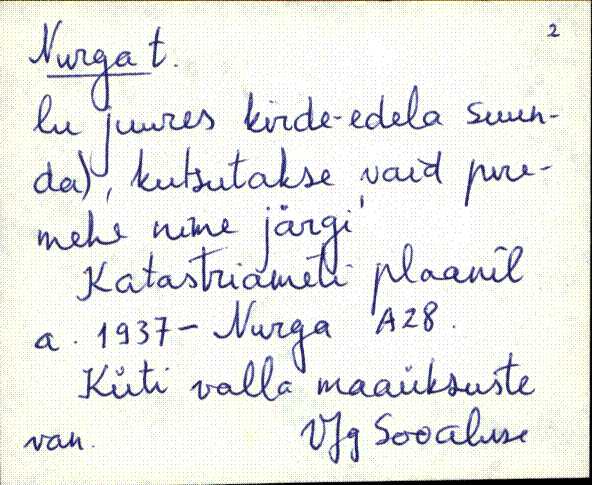 2
Nurga t.
lu juures kirde-edela suun-
da), kutsutakse vaid pere-
mehe nime järgi
Katastriameti plaanil
a. 1937 - Nurga A28.
Küti valla maaüksuste
van. VJg Sooaluse